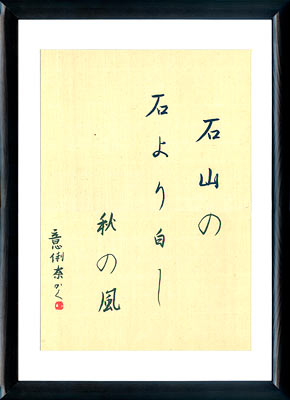 石山の
石より白し
秋の風
意俐奈かく